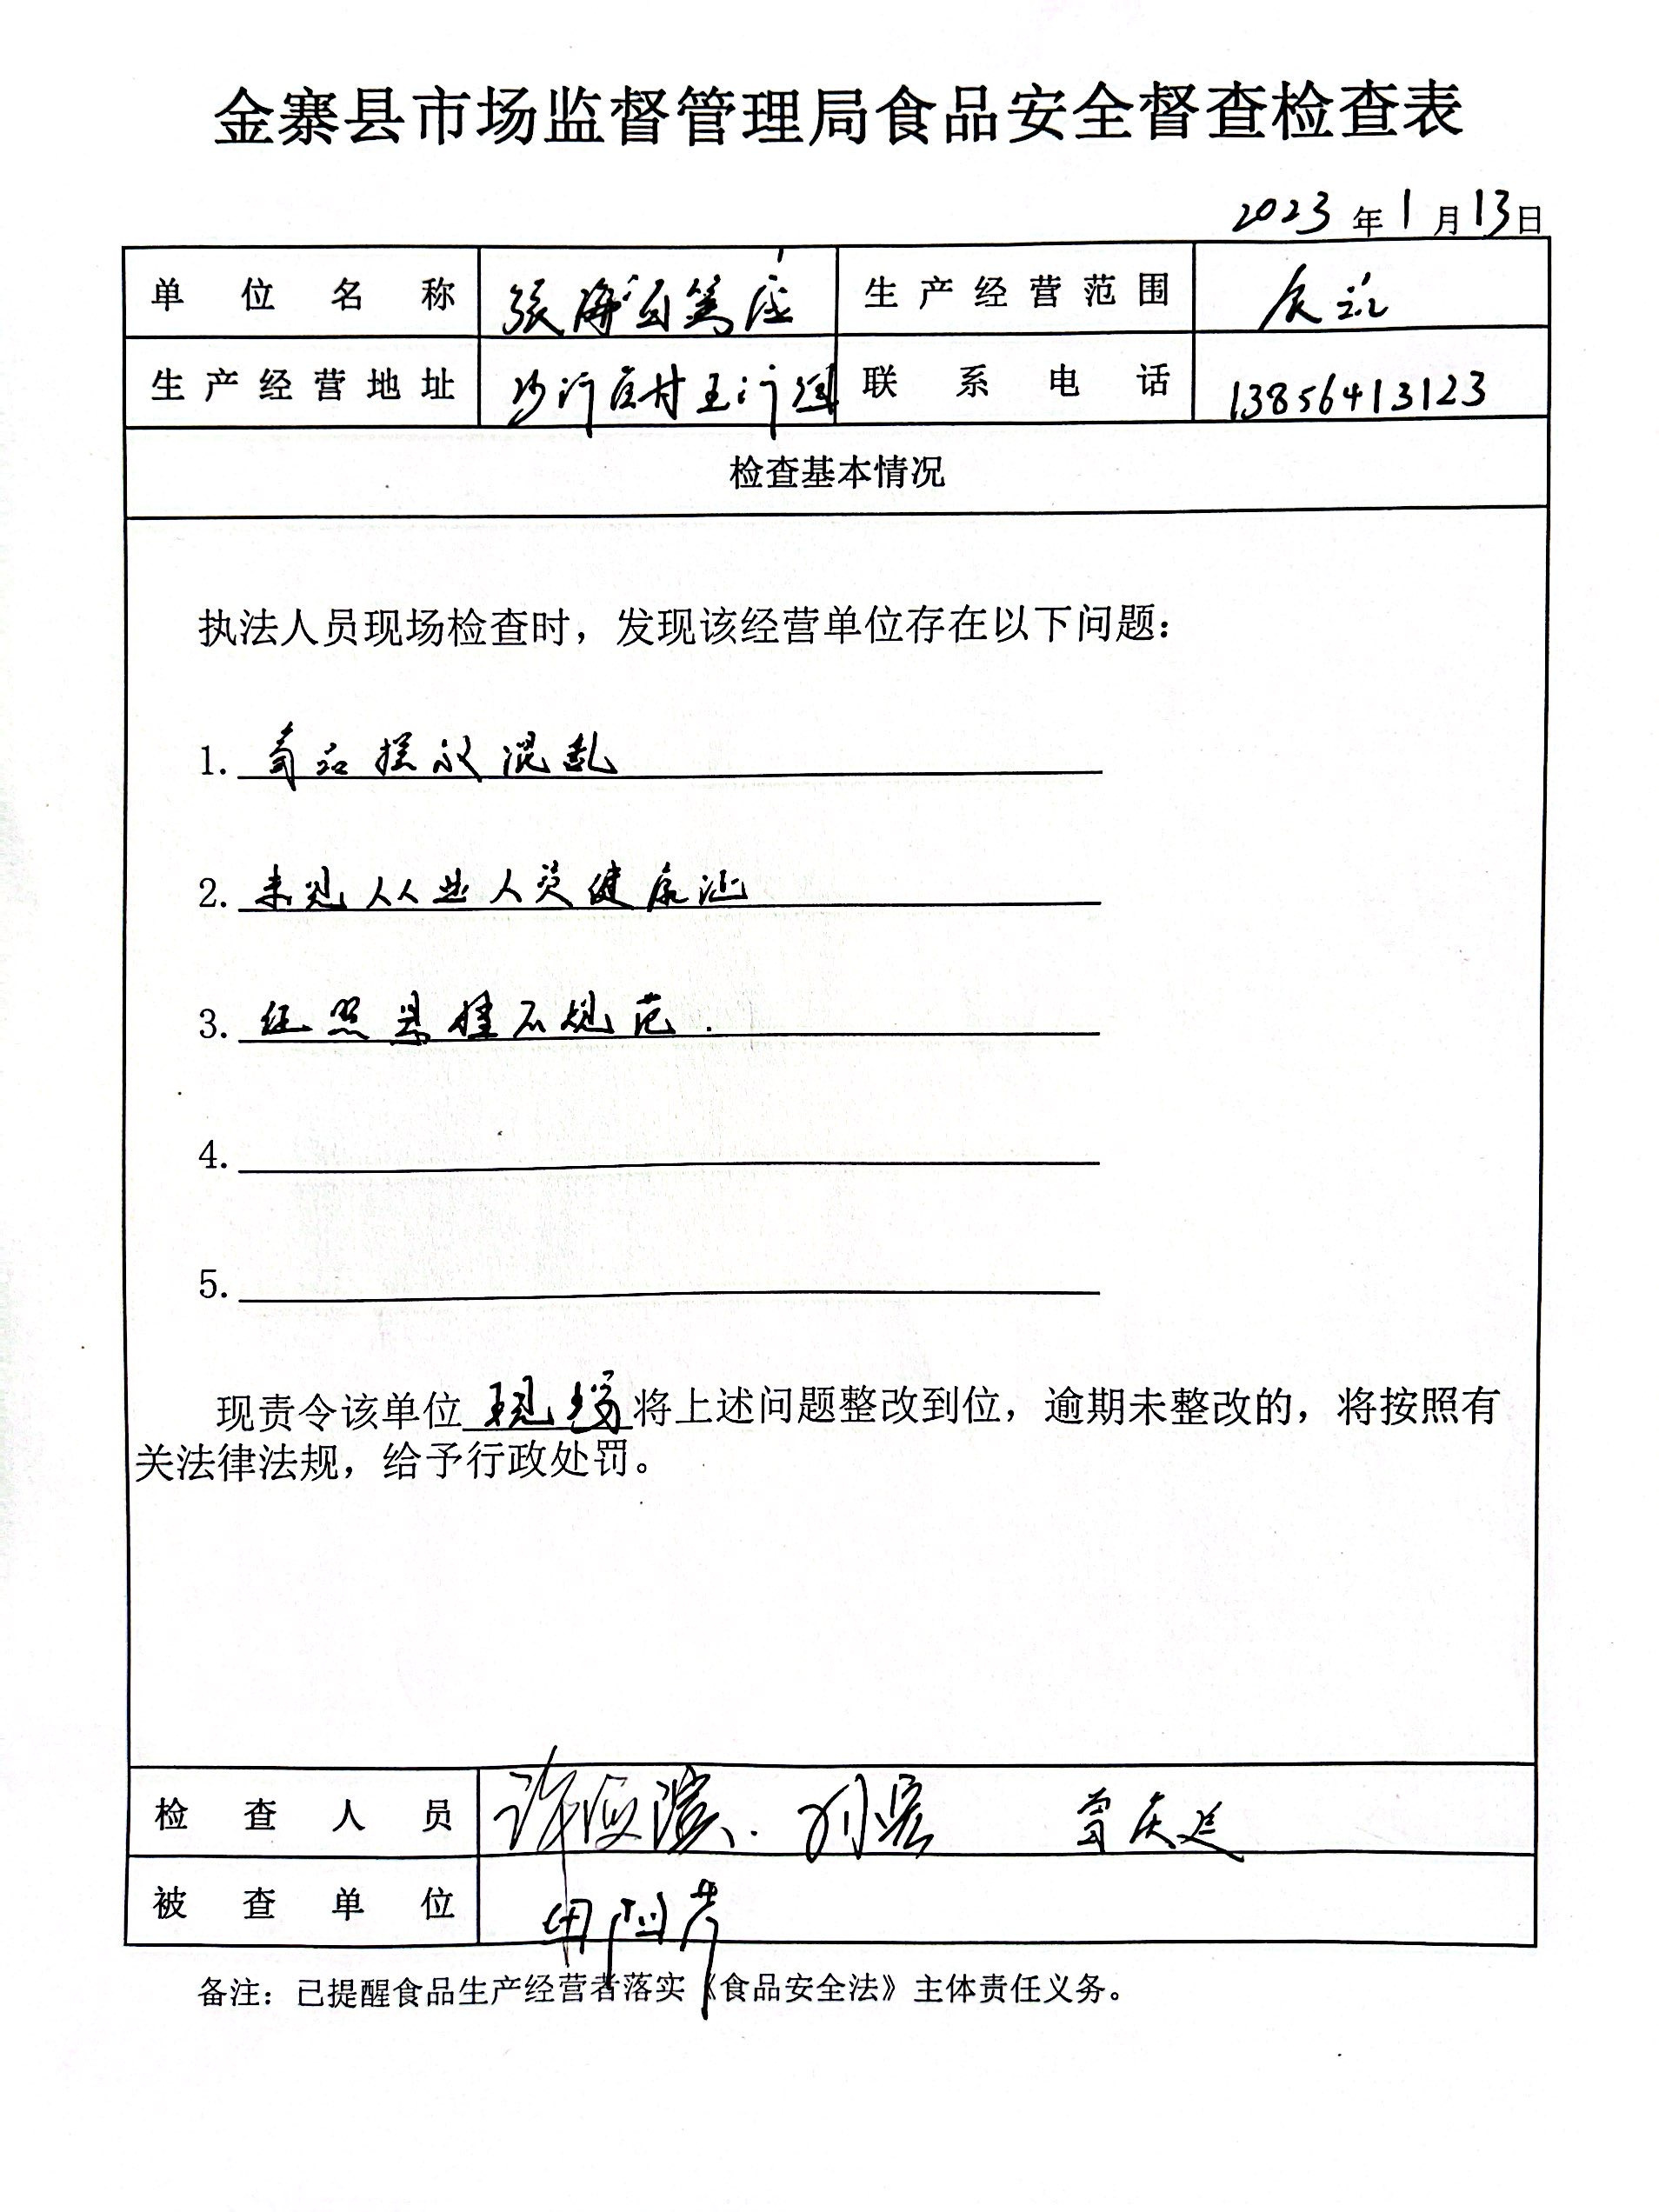 金寨县市场监督管理局食品安全督查检查表
2023年1月13日
单位名称 张海 生产经营范围
生产经营地址 沙河 村王 组 联系电话 13856413123
检查基本情况
执法人员现场检查时，发现该经营单位存在以下问题：
1. 食品摆放混乱
2. 未见从业人员健康证
3. 证照悬挂不规范.
4.
5.
现责令该单位现场将上述问题整改到位，逾期未整改的，将按照有
关法律法规，给予行政处罚。
检查人员 许 刘 曾庆廷
被查单位 田
备注：已提醒食品生产经营者落实《食品安全法》主体责任义务。